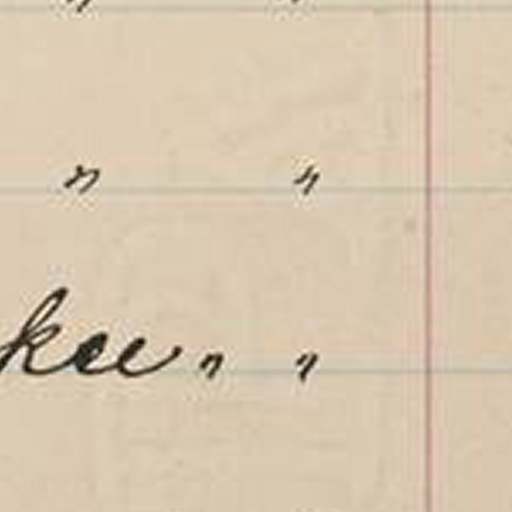 " "
" "
kee " "